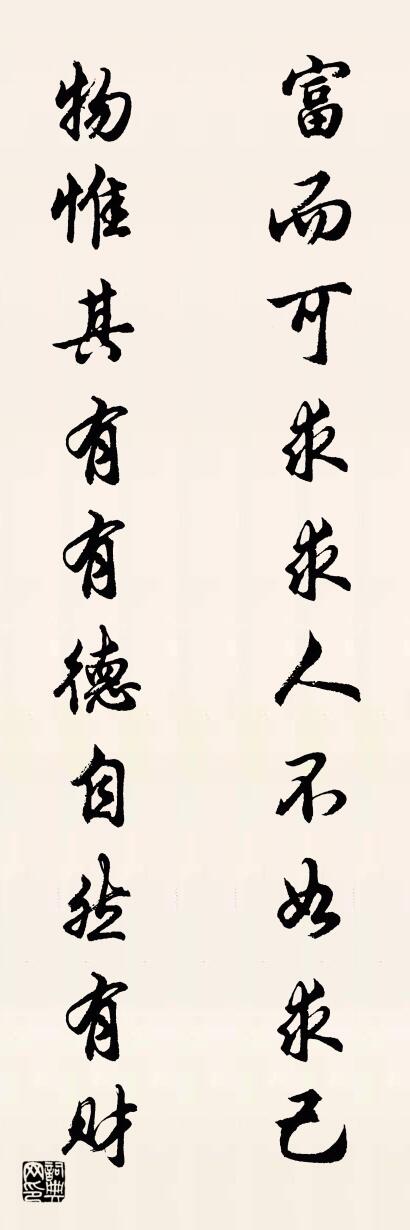 富而可求求人不如求己
物惟其有有德自然有财
詞典
网印